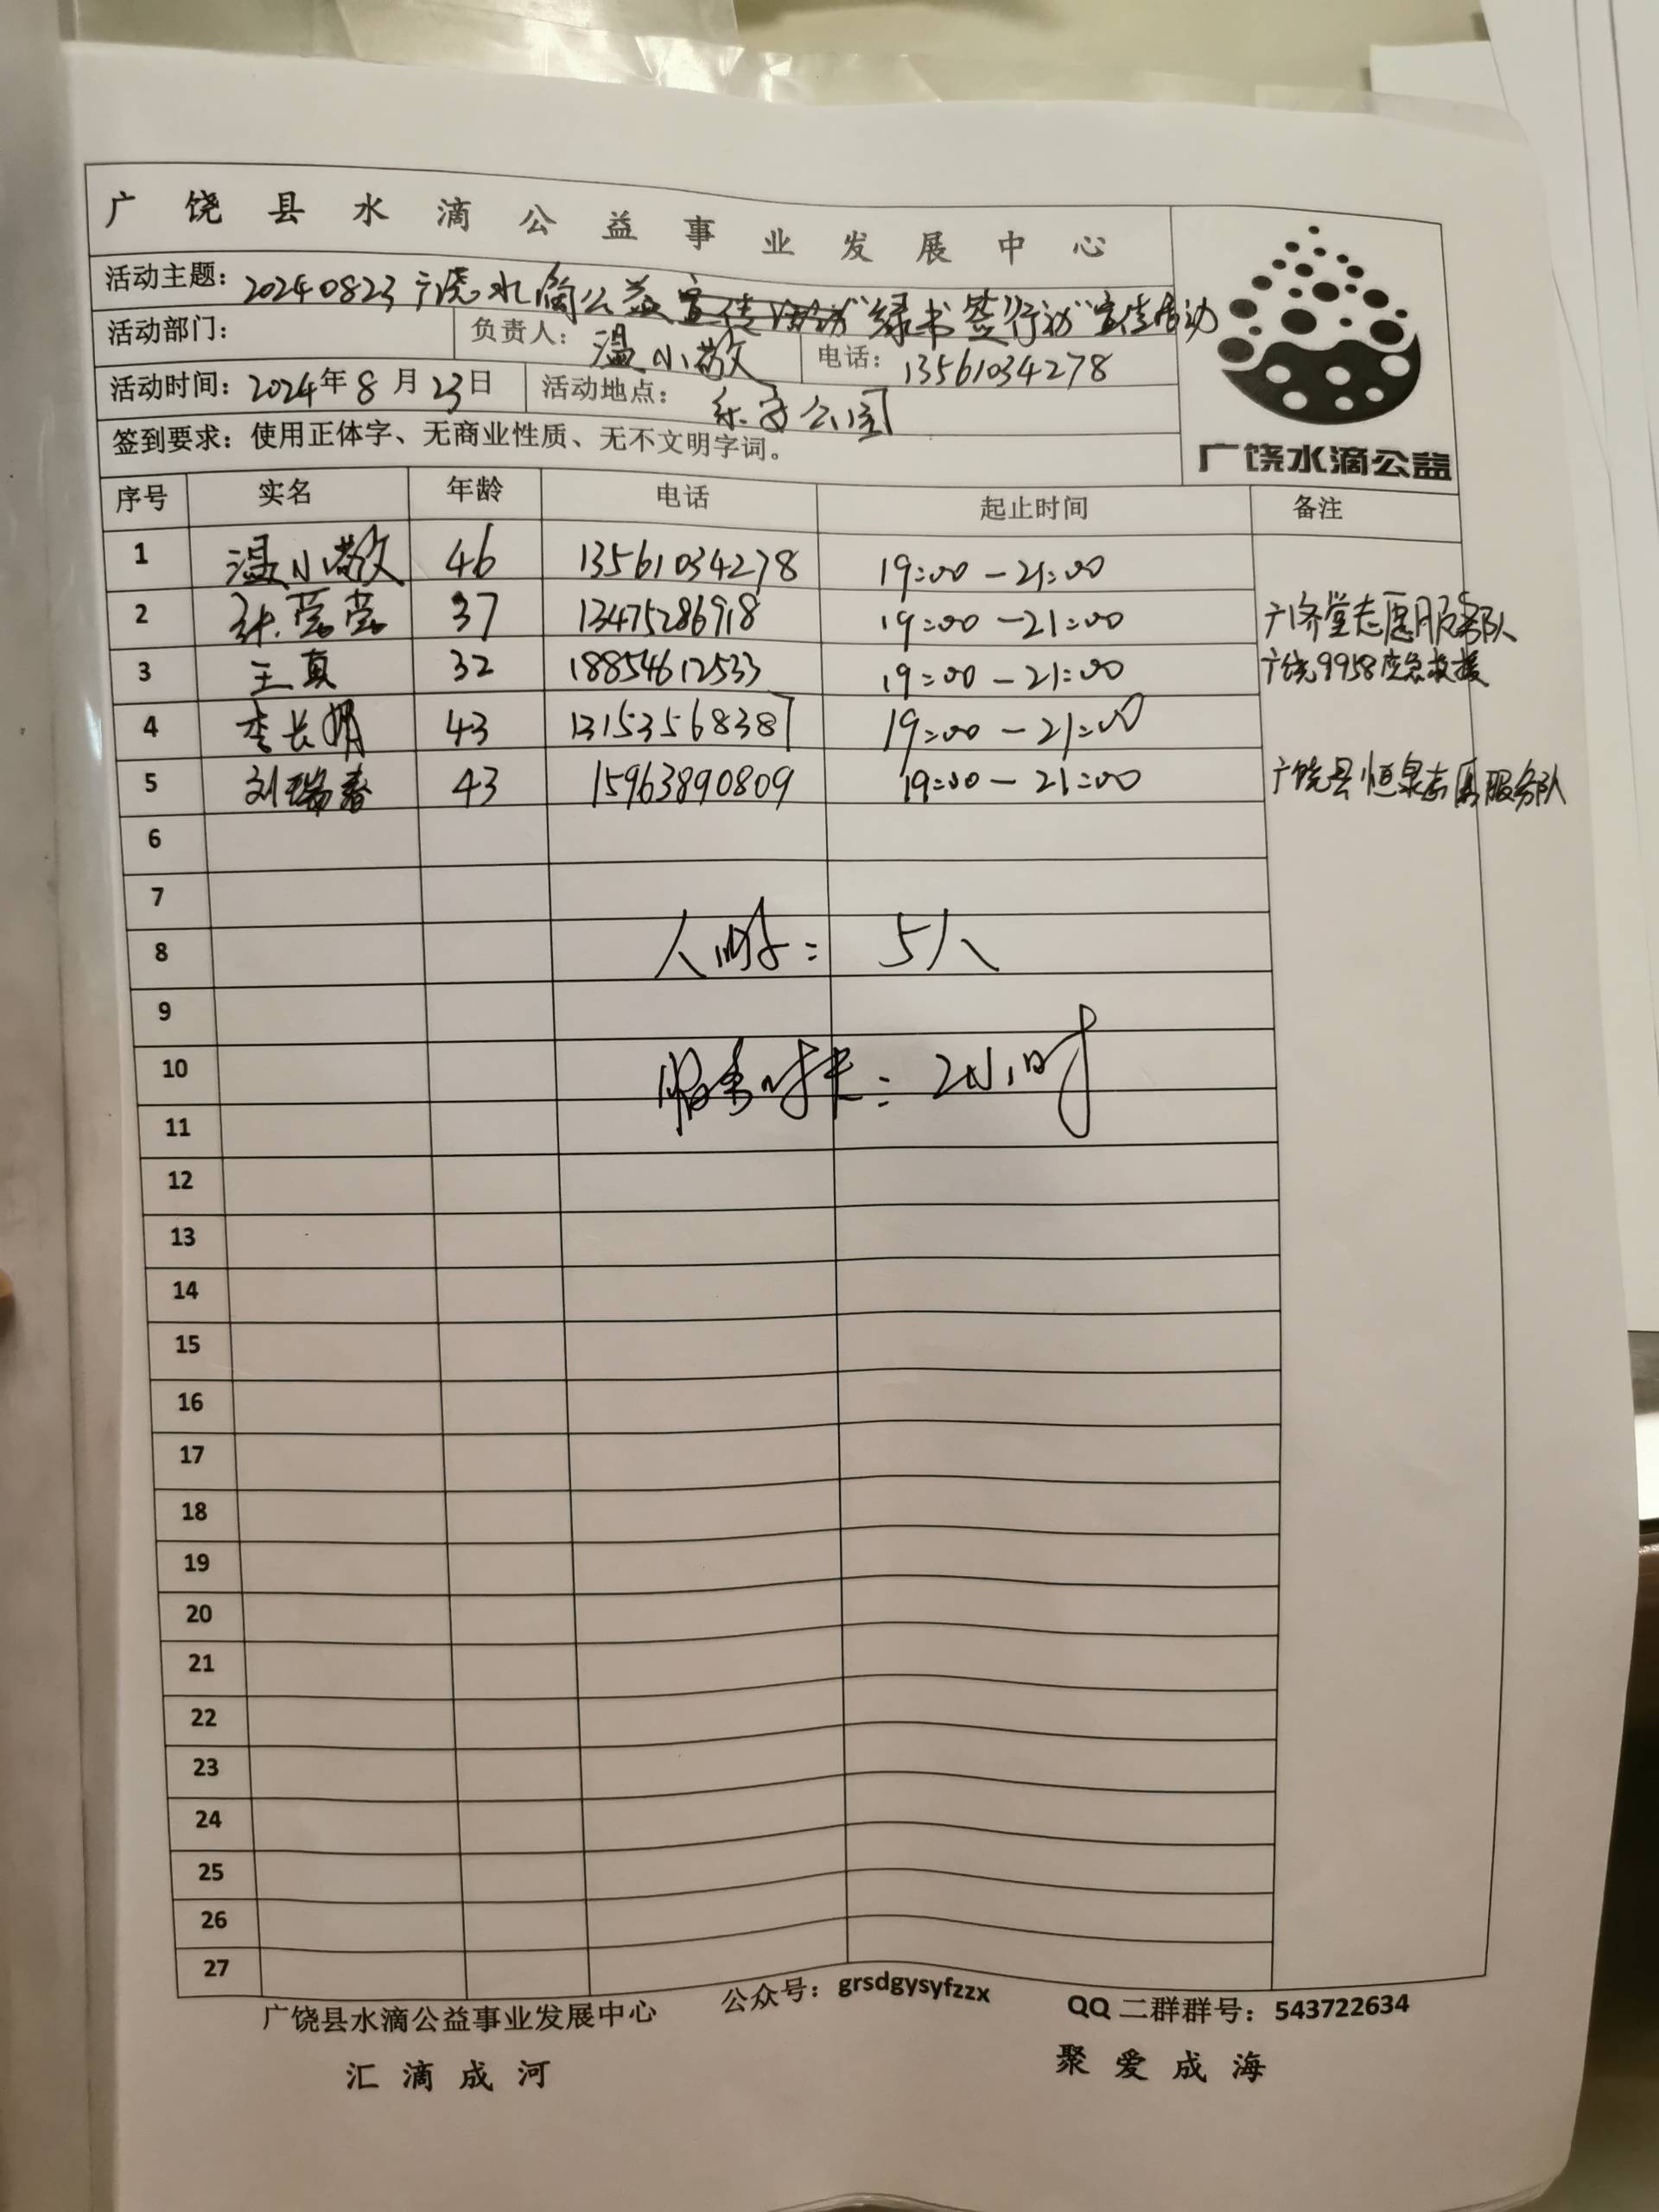 广饶县水滴公益事业发展中心
活动主题：20240823广饶水滴公益宣传活动“绿书签行动”宣传活动
活动部门： 负责人：温小敬 电话：13561034278
活动时间：2024年8月23日 活动地点：乐安公园
签到要求：使用正体字、无商业性质、无不文明字词。
广饶水滴公益
序号 实名 年龄 电话 起止时间 备注
1 温小敬 46 13561034278 19:00-21:00
2 张莹莹 37 13475286918 19:00-21:00 广济堂志愿服务队
3 王真 32 18854612533 19:00-21:00 广饶9958应急救援
4 李长明 43 13153568387 19:00-21:00
5 刘瑞春 43 15963890809 19:00-21:00 广饶县恒泉志愿服务队
6
7
8 人 : 5人
9
10 服务时长: 2小时
11
12
13
14
15
16
17
18
19
20
21
22
23
24
25
26
27
广饶县水滴公益事业发展中心 公众号：grsdgysyfzzx QQ二群群号：543722634
汇滴成河 聚爱成海